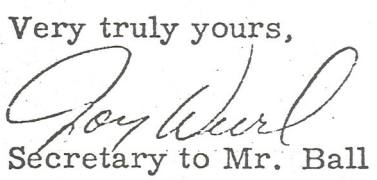 Very truly yours,
Joy Wurl
Secretary to Mr. Ball